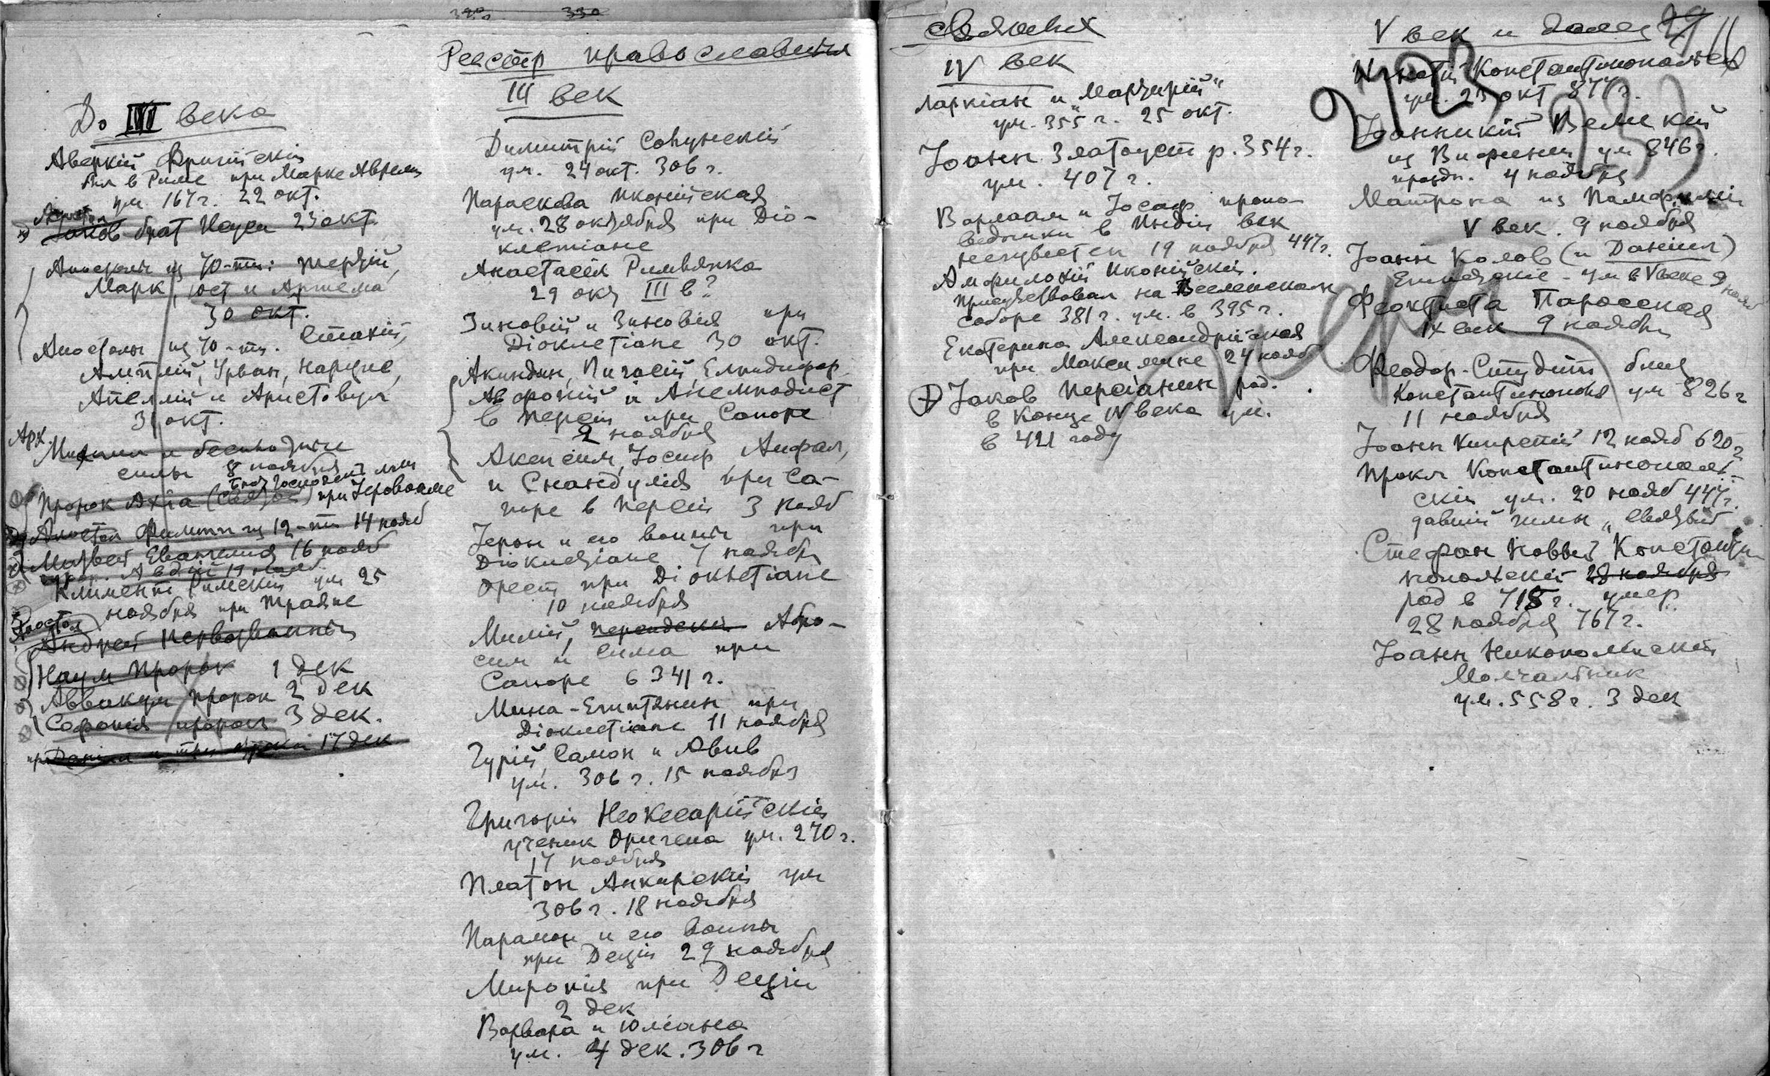 Реестр православных
святых
До III века
Аверкій Фригійскій
был в Риме при Марке Аврелии
ум 167 г. 22 окт.
Апостол
Іаков брат Иисуса 23 окт
Апостолы из 70-ти: Терзій,
Марк, Іуст и Артема
30 окт.
Апостолы из 70-ти. Стахій,
Амплій, Урван, Наркис,
Апеллій и Аристовул
31 окт.
Арх.
Михаил и безплодные
силы 8 ноября
Пророк Ахіа при Іеровоаме
Апостол Филипп из 12-ти 14 нояб
Матвей Евангелист 16 нояб
Авдій 19 нояб
Климент Римскій ум 25
ноября при Траяне
Апостол
Андрей Первозванный
Наум Пророк 1 дек
Аввакум пророк 2 дек
Софонія пророк 3 дек.
Даніил и три отрока 17 дек
III век
Димитрій Солунскій
ум. 24 окт. 306 г.
Параскева Иконійская
ум. 28 октября при Діо-
клетіане
Анастасія Римлянка
29 окт III в?
Зиновій и Зиновія при
Діоклетіане 30 окт.
Акиндин, Пигасій Елпидифор,
Афвоній и Анемподист
в Персіи при Сапоре
2 ноября
Акепсим, Іосиф Аифал,
и Снандулія при Са-
поре в Персіи 3 нояб
Іерон и его воины при
Діоклетіане 7 ноября
Орест при Діоклетіане
10 ноября
Милій, Авро-
сим и Сима при
Сапоре в 341 г.
Мина-Египтянин при
Діоклетіане 11 ноября
Гурій, Самон и Авив
ум. 306 г. 15 ноября
Григорій Неокесарійскій
ученик Оригена ум. 270 г.
17 ноября
Платон Анкирскій ум
306 г. 18 ноября
Парамон и его воины
при Деціи 29 ноября
Миропія при Деціи
2 дек
Варвара и Юліана
ум. 4 дек. 306 г
IV век
Маркіан и "Мартирій"
ум. 355 г. 25 окт.
Іоанн Златоуст р. 354 г.
ум. 407 г.
Варлаам и Іосаф пропо-
ведники в Индіи век
неизвестен 19 ноября
Амфилохій Иконійскій.
присутствовал на Вселенском
соборе 381 г. ум. в 395 г.
Екатерина Александрійская
при Максимине 24 нояб
Іаков Персіанин род.
в конце IV века ум.
в 421 году
V век и далее
Игнатій Константинопольск
ум. 23 окт 877 г.
Іоанникій Великій
из Вифиніи ум 846 г.
празд. 4 ноября
Матрона из Памфиліи
V век. 9 ноября
Іоанн Колов (и Даніил)
Египетскіе - ум в V веке 9 нояб
Феоктиста Паросская
IX век 9 ноября
Феодор-Студит близ
Константинополя ум 826 г
11 ноября
Іоанн 12 нояб 620 г
Прокл Константинополь-
скій ум. 20 нояб 447 г.
давшій гимн „Святый
Стефан Новый Константи-
нопольскій 28 ноября
род в 715 г. умер
28 ноября 767 г.
Іоанн Никопольскій
Молчальник
ум. 558 г. 3 дек